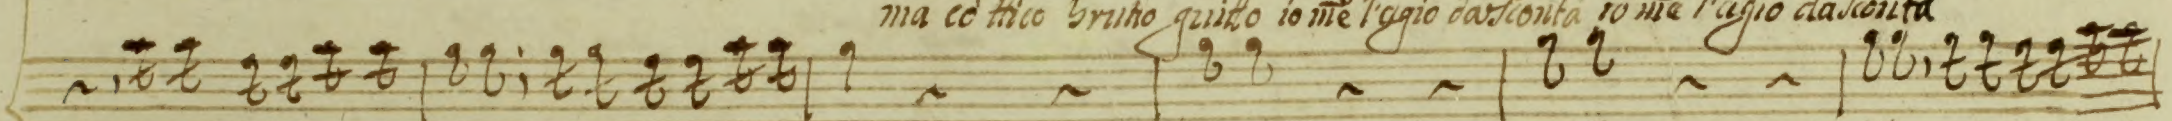 ma co ttico brutto guitto io mē l'agio dascontà io me l'agio dascontà